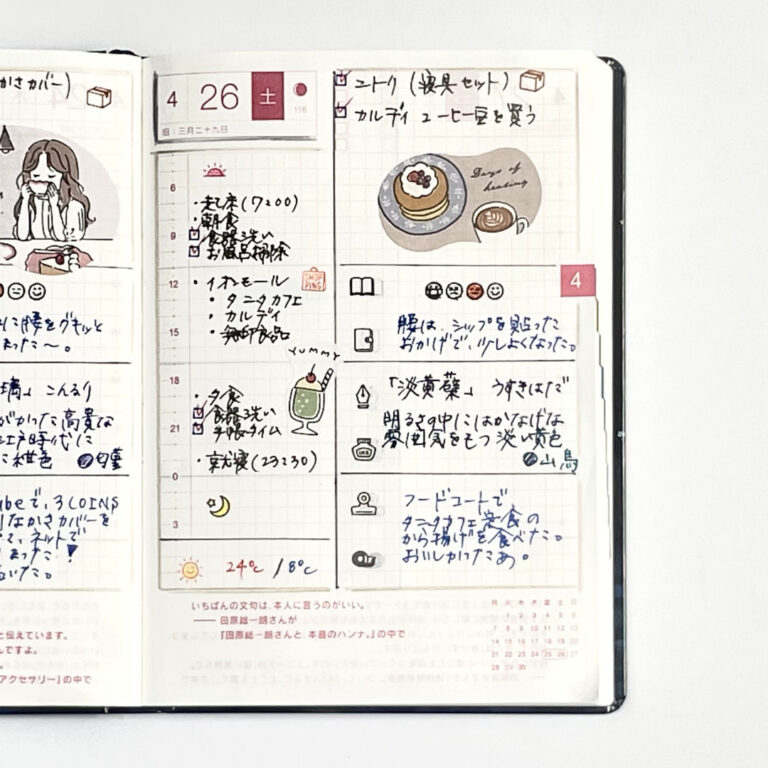 かさカバー)
に腰をグキッと
まった〜。
璃」 こんるり
がかった高貴な
江戸時代に
に紺色
beで、3COINS
なかさカバーを
て、ネットで
まった!
いた。
と伝えています。
んですよ。
アクセサリー』の中で
4 26 土
116
旧:三月二十九日
6
・起床(7:00)
・朝食
9 食器洗い
お風呂掃除
12 ・イオンモール
SHOPPING
・タニタカフェ
・カルディ
15 ・無印食品
YUMMY
18
・夕食
食器洗い
21 手帳タイム
・就寝(23:30)
0
3
24℃ /8℃
ニトリ(寝具セット)
カルディ コーヒー豆を買う
Days of
healing
4
腰は、シップを貼った
おかげで、少しよくなった。
「淡黄蘗」 うすきはだ
明るさの中にはかなげな
雰囲気をもつ淡い黄色
INK
山鳥
フードコートで
タニタカフェ定食の
から揚げを食べた。
おいしかったなぁ。
いちばんの文句は、本人に言うのがいい。
—— 田原総一朗さんが
『田原総一朗さんと 本目のハンナ。』の中で
月 火 水 木 金 土 日
1 2 3 4 5 6
7 8 9 10 11 12 13
14 15 16 17 18 19 20
21 22 23 24 25 26 27
28 29 30